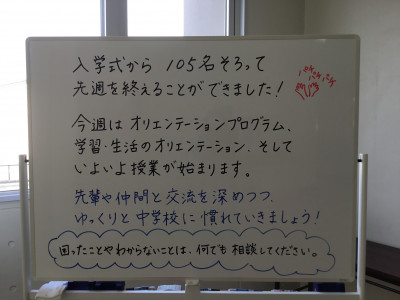 入学式から 105名そろって
先週を終えることができました！
パチパチパチ
今週は オリエンテーションプログラム、
学習・生活のオリエンテーション、そして
いよいよ授業が始まります。
先輩や仲間と交流を深めつつ、
ゆっくりと中学校に慣れていきましょう！
困ったことやわからないことは、何でも相談してください。